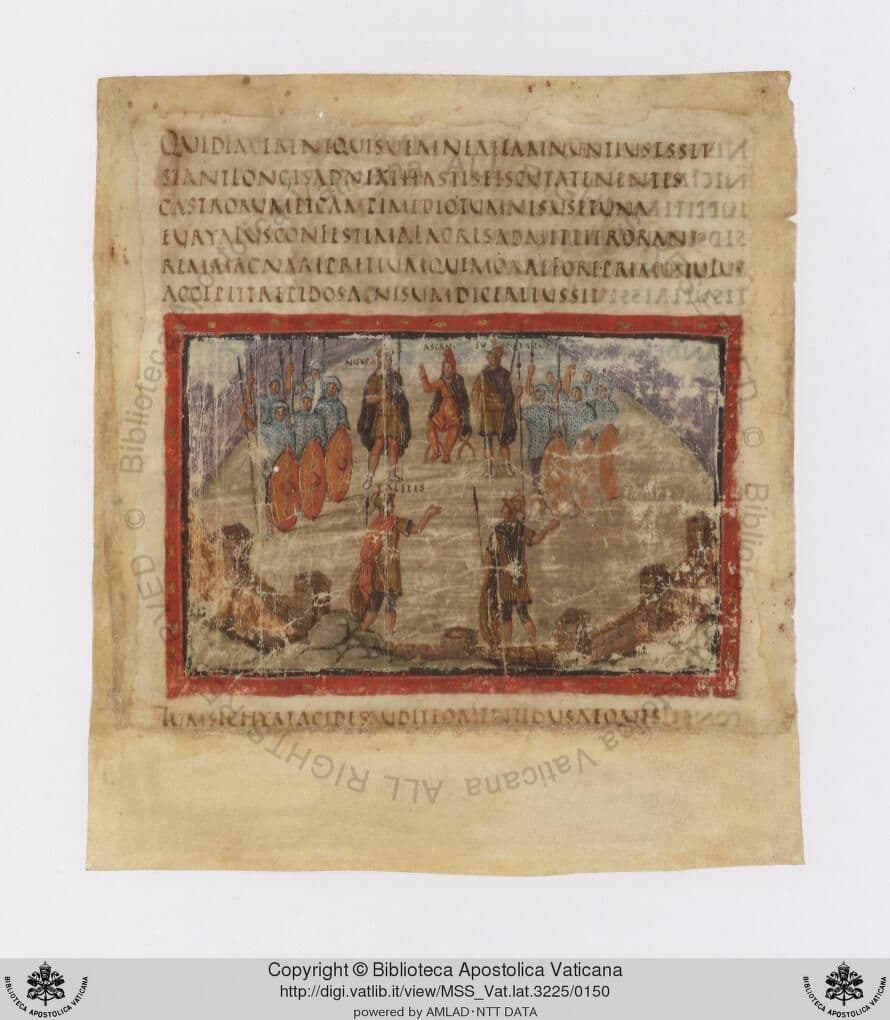 QUIDFACERENTQUISVEAENEAEIAMNUNTIUSESSET
STANTLONGISADNIXIHASTISETSCUTATENENTES
CASTRORUMETCAMPIMEDIOTUMNISUSETUNA
EURYALUSCONFESTIMALACRESADMITTIERORANT
REMMAGNAMPRETIUMQUEMORAEFOREPRIMUSIULUS
ACCEPITTREPIDOSACNISUMDICEREIUSSIT
NISUS ASCAN EU
ALETES
TUMSICHYRTACIDESAUDITEOMENTIBUSAEQUIS
© Biblioteca Apostolica Vaticana ALL RIGHTS RESERVED
Copyright © Biblioteca Apostolica Vaticana
http://digi.vatlib.it/view/MSS_Vat.lat.3225/0150
powered by AMLAD·NTT DATA
BIBLIOTECA APOSTOLICA VATICANA
BIBLIOTECA APOSTOLICA VATICANA